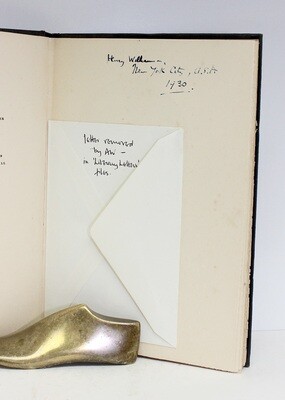 Henry
New York City, U.S.A.
1930.
letter removed
by AW —
in 'Literary Letters'
files